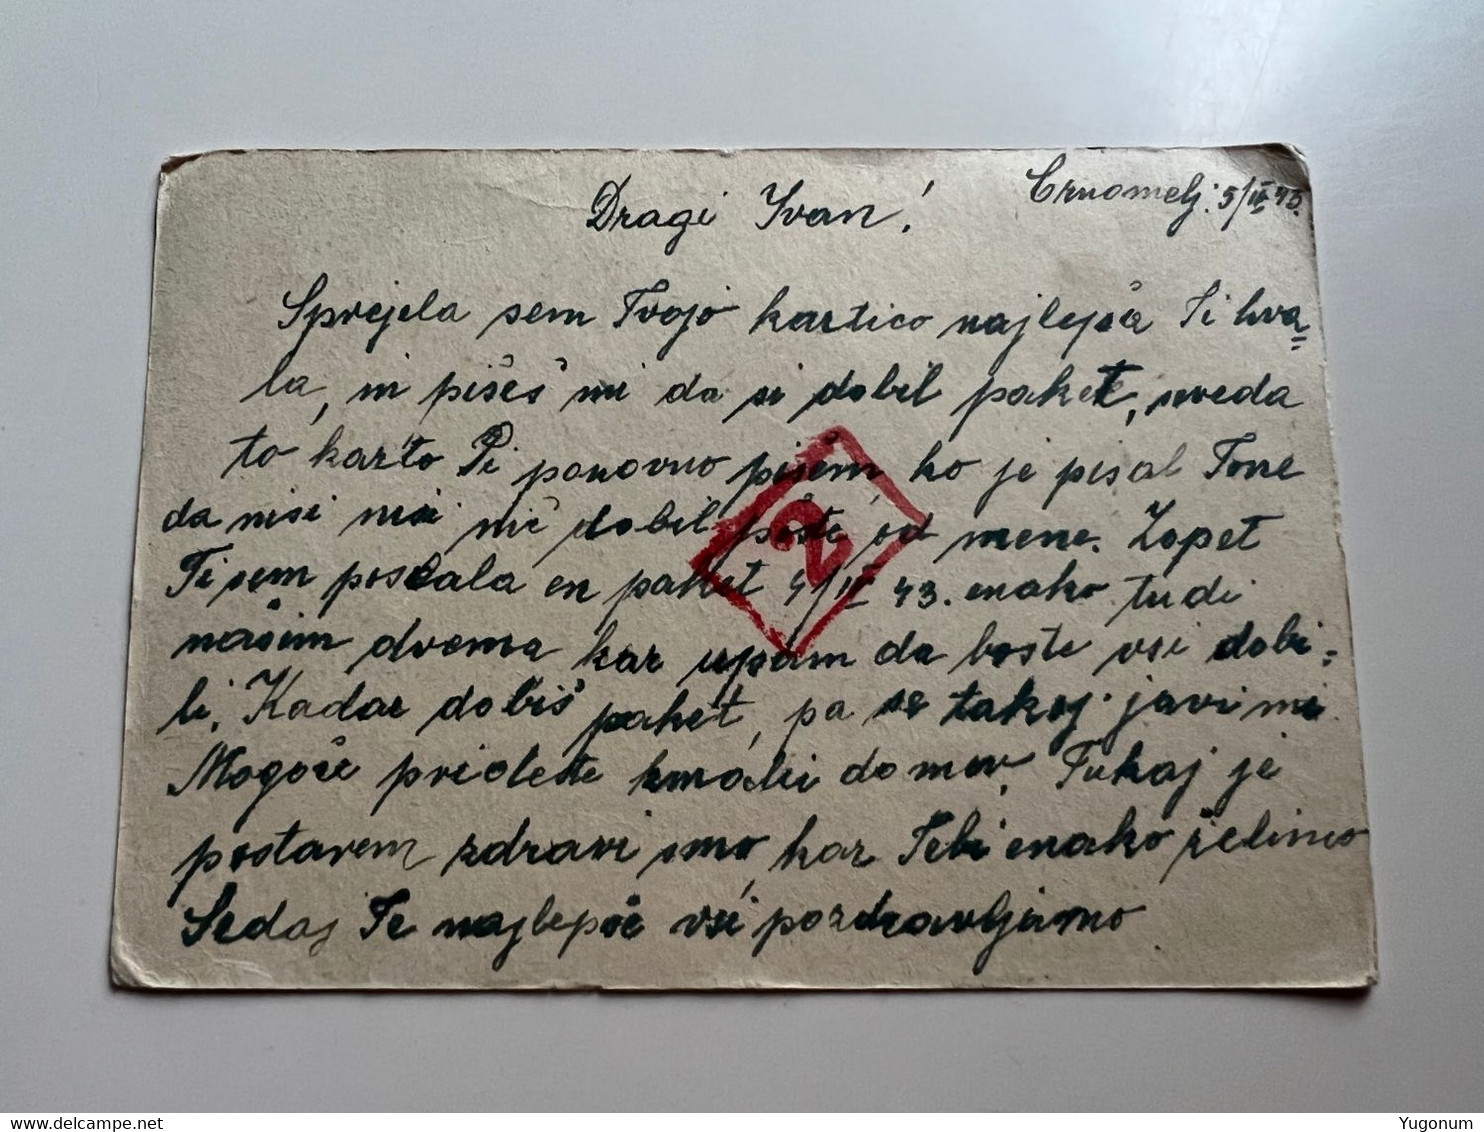 Črnomelj: 5/IV 43.
Dragi Ivan!
Sprejela sem Tvojo kartico najlepša Ti hva=
la, in pišeš mi da si dobil paket, sveda
to karto Ti ponovno pišem, ko je pisal Tone
da nisi nič dobil pošte od mene. Zopet
Ti sem poslala en paket 4/IV 43. enako tudi
našim dvema kar upam da boste vsi dobi=
li. Kadar dobiš paket, pa se takoj javi mi
Mogoče pridete kmalu domov, Tukaj je
postarem zdravi smo, kar Tebi enako želimo
Sedaj Te najlepše vsi pozdravljamo
2
Yugonum
delcampe.net